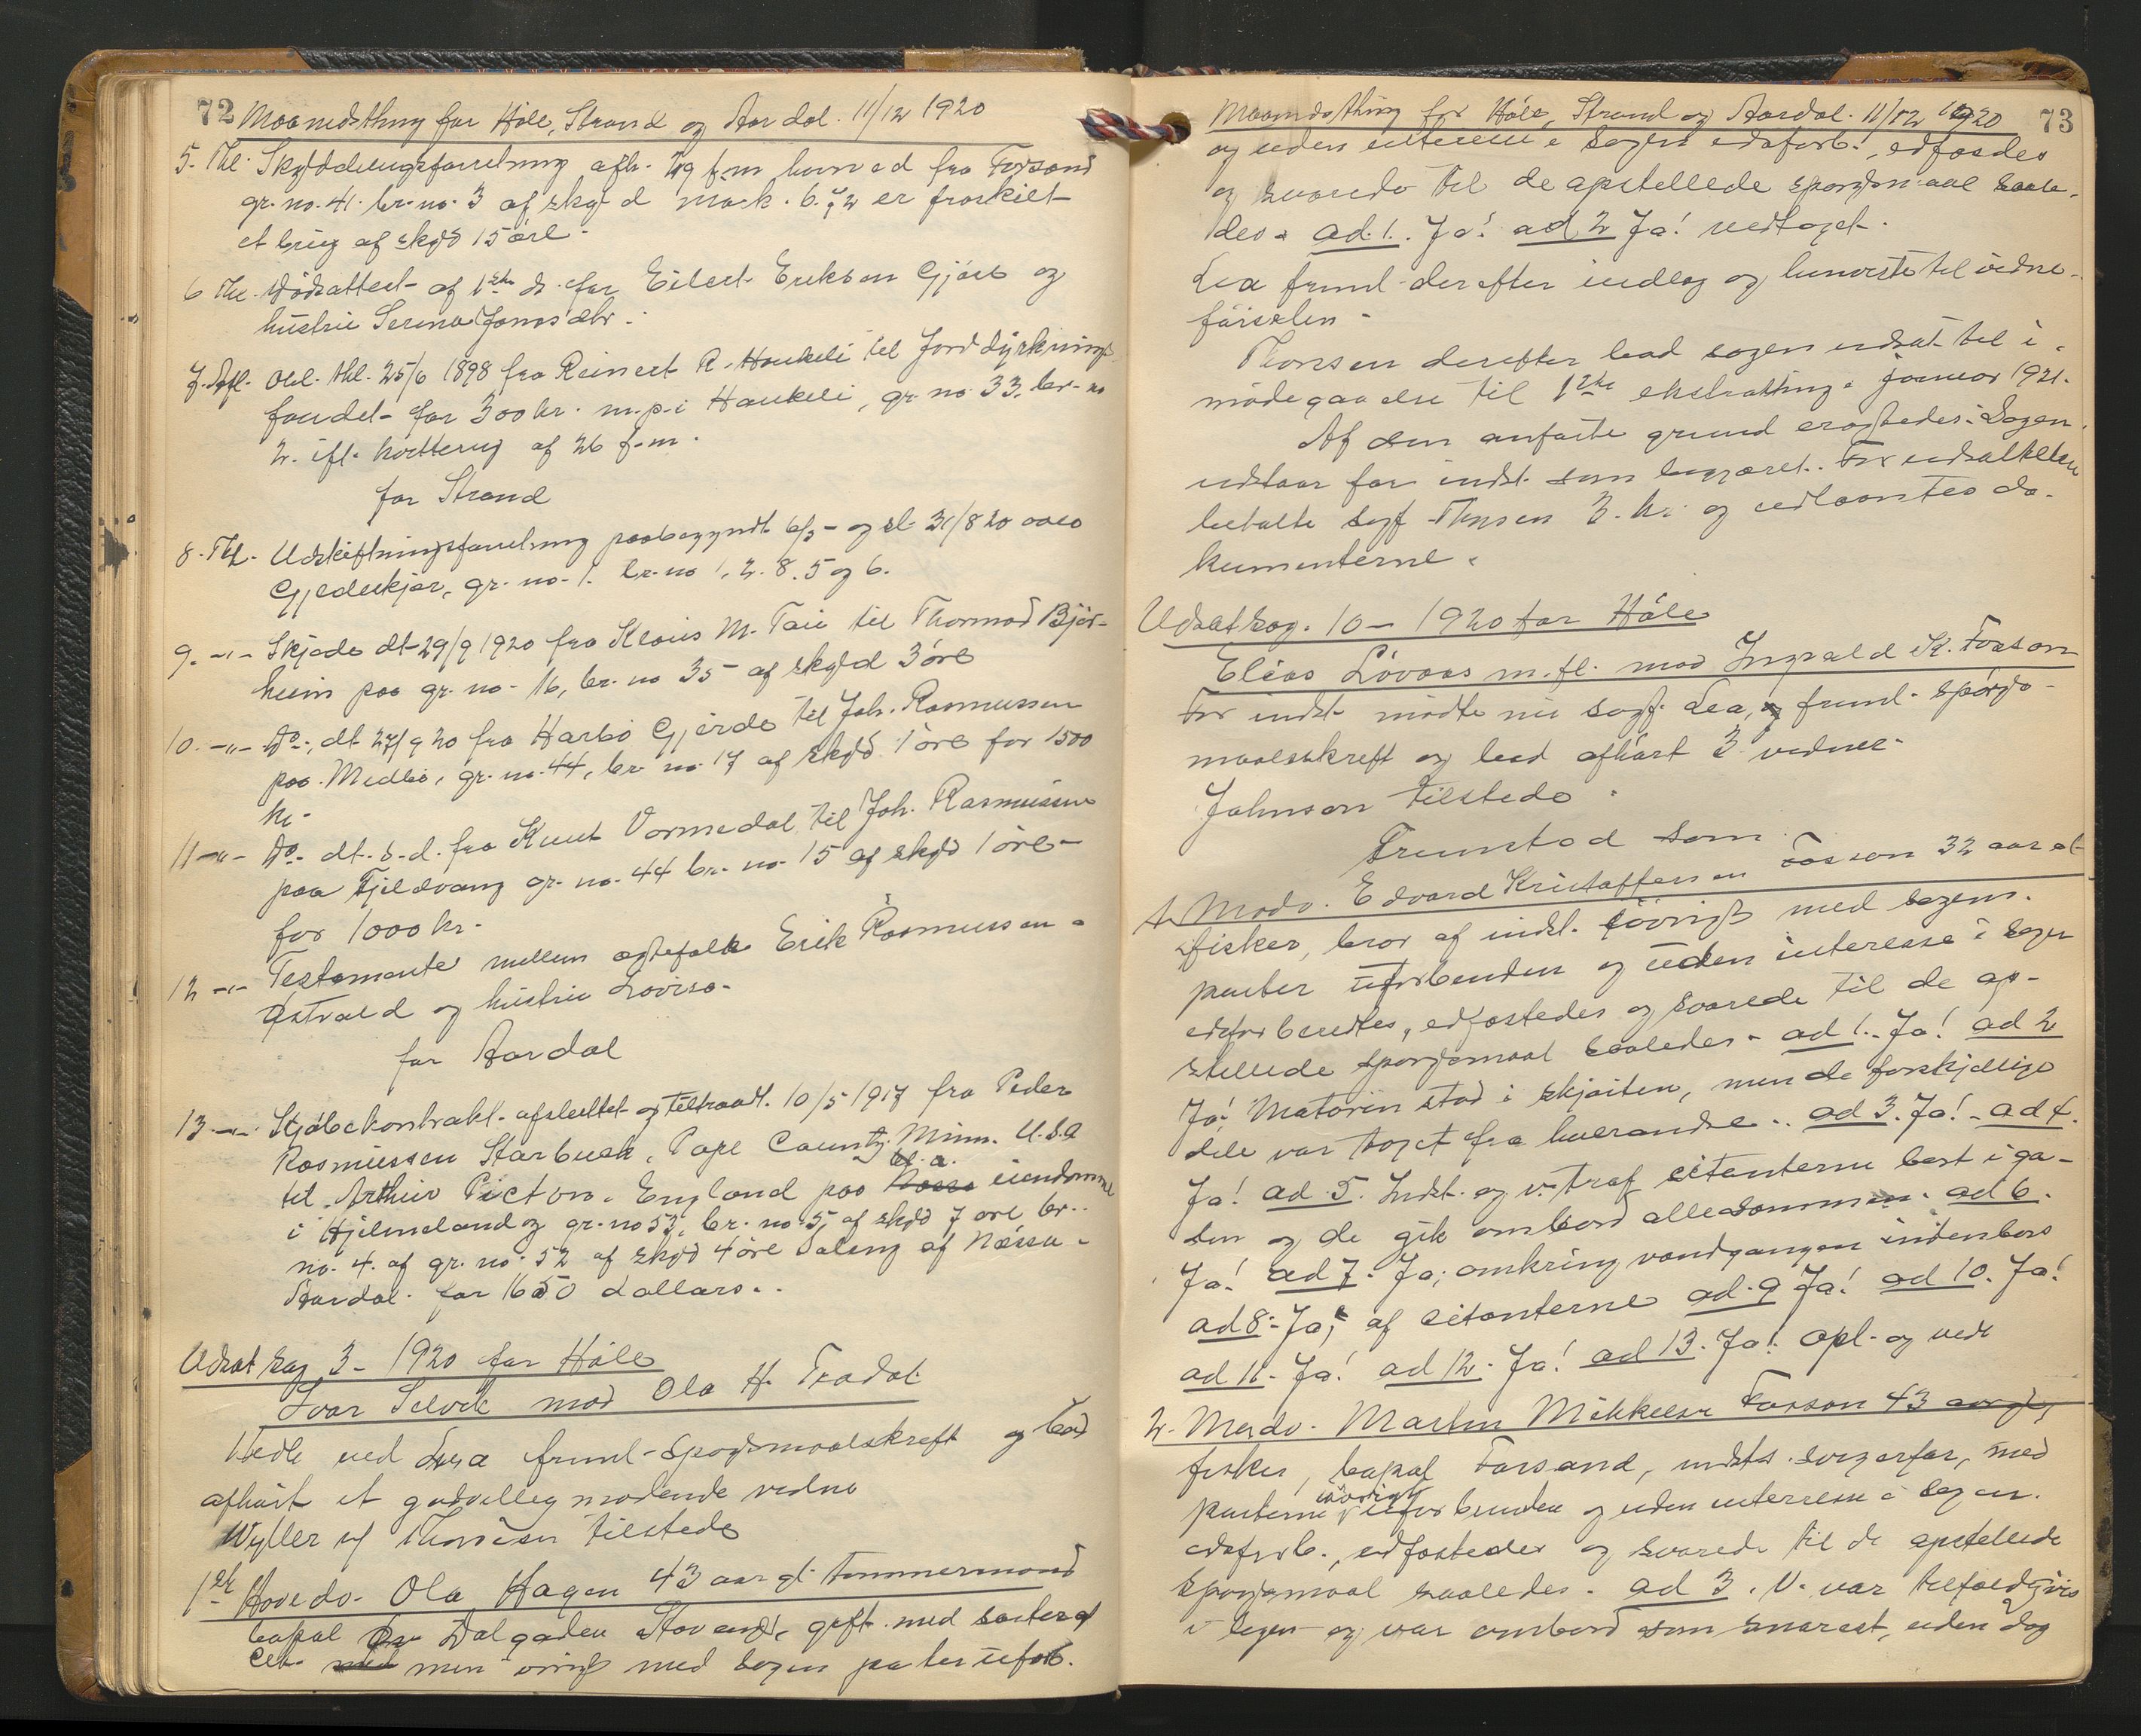 72 Maanedsthing for Høle, Strand og Aardal. 11/12 1920
5. Thl. Skylddelingsforretning afh. 29 f.m. hvorved fra Forsand
gr. no. 41. br. no. 3 af skyld mark. 6.72 er fraskilt
et brug af skyld 15 øre.
6 Thl. Dødsattest af 1ste ds. for Eilert Eriksen Gjøse og
hustru Serina Jonasdtr.
7. Afl. Obl. thl. 25/6 1898 fra Reinert R. Haukeli til Jorddyrknings
fondet for 300 kr. m. p. i Haukeli, gr. no 33. br. no
2. ifl. kvittering af 26 f.m.
for Strand
8. Thl. Udskiftningsforretning paabegyndt 6/5 og sl. 31/8 20 over
Gjeldeskjør, gr. no. 1. br. no 1, 2. 8. 5 og 6.
9. -"- Skjøde dt. 29/9 1920 fra Klaus M. Tau til Thormod Bjør-
heim paa gr. no. 16, br. no 35 af skyld 3 øre
10. -"- Do., dt. 27/9 20 fra Harbo Gjerde til Joh. Rasmussen
paa Medbø, gr. no. 44, br. no. 17 af skyld 1 øre for 1500
kr.
11 -"- Do. dt. s. d. fra Knut Vormedal til Joh. Rasmussen
paa Fjeldvang gr. no. 44 br. no. 15 af skyld 1 øre
for 1000 kr.
12 -"- Testamente mellem egtefolk Erik Rasmussen
Østvold og hustru Lovise.
for Aardal
13 -"- Kjøbekontrakt afsluttet og tiltraadt. 10/5 1917 fra Peder
Rasmussen Starbuck, Pope County. Minn. U.S.A
til Arthur Picton. England paa bl. a. eiendomme
i Hjelmeland og gr. no 53, br. no. 5, af skyld 7 øre, br.
no. 4. af gr. no. 52 af skyld 4 øre Valeng af Næssa i
Aardal for 1650 dollars.
Udsat sag 3 - 1920 for Høle
Ivar Selvik mod Ola H. Tradal.
Hedle ved Lea freml. Spørgsmaalskrift og bad
afhørt et godvillig mødende vidne
Wyller v/ Thorsen tilstede
1ste Hovedv. Ola Hagen 43 aar gl. tømmermand
bopæl Dalgaden Stavanger, gift med søster af
Cit. men øvrigt med sagens parter uforb.
Maanedsthing for Høle, Strand og Aardal. 11/12 1920 73
og uden interesse i sagen edsforb., edfæstedes
og svarede til de opstillede spørgsmaal saale-
des. ad. 1. Ja! ad 2 Ja! vedtaget.
Lea freml. derefter indlæg og henviste til vidne-
førselen.
Thorsen derefter bad sagen udsat til i-
mødegaaelse til 1ste ekstrathing i januar 1921.
Af den anførte grund eragtedes: Sagen
udstaar for indst. som begjæret. For udsættelsen
betalte sagf. Thorsen 3. kr. og udlaantes do-
kumenterne.
Udsat sag. 10 - 1920 for Høle
Elias Løvaas m. fl. mod Ingvald K. Fossan
For indst. mødte nu sagf. Lea, freml. spørgs-
maalskrift og bad afhørt 3 vidner.
Johnson tilstede.
Fremstod som
1. Modv. Edvard Kristoffersen Fossan 32 aar gl.
fisker, bror af indst. øvrigt med sagens
parter uforbunden og uden interesse i sagen
edsforberedtes, edfæstedes og svarede til de op-
stillede spørgsmaal saaledes. ad 1. Ja! ad 2
Ja! Motoren stod i skjøiten, men de forskjellige
dele var taget fra hverandre. ad 3. Ja! ad 4.
Ja! ad. 5. Indst. og v. traf citanterne bort i ga-
den og de gik ombord allesammen. ad 6.
Ja! ad 7. Ja; omkring vandgangen indenbors
ad 8. Ja; af citanterne ad. 9 Ja! ad 10. Ja!
ad 11. Ja! ad 12. Ja! ad 13. Ja! Opl. og vedt
2. Modv. Martin Mikkelsen Fossan 43 aar gl,
fisker, bopæl Forsand, indsts. svigerfar, med
parterne iøvrigt uforbunden og uden interesse i sagen.
edsforb., edfæstedes og svarede til de opstillede
spørgsmaal saaledes. ad 3. V. var tilfældigvis
i byen og var ombord som snarest, uden dog